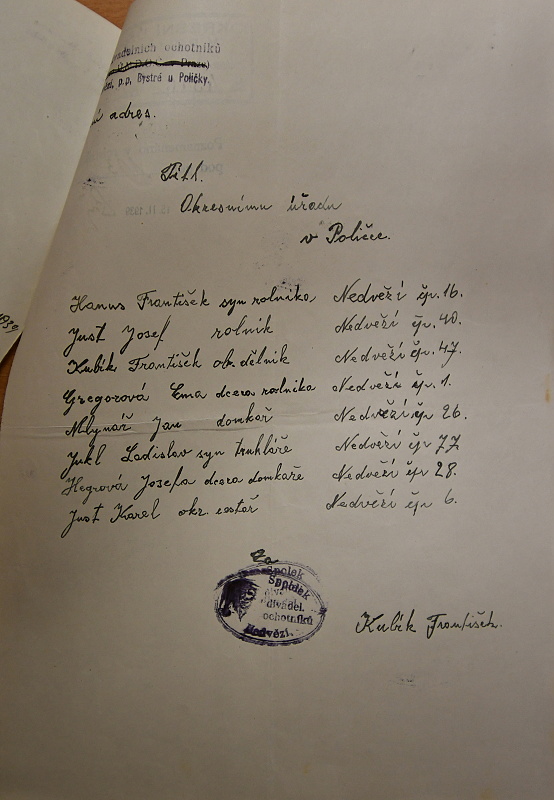 ochotníků
p.p. Bystré u Poličky.
adres.
Titl.
Okresnímu úřadu
v Poličce.
Hanus František syn rolníka Nedvězí čp. 16.
Just Josef rolník Nedvězí čp. 40.
Kubík František ob. dělník Nedvězí čp. 47.
Gregorová Ema dcera rolníka Nedvězí čp. 1.
Mlynář Jan domkař Nedvězí čp 26.
Jukl Ladislav syn truhláře Nedvězí čp 77
Hegrová Josefa dcera domkaře Nedvězí čp 28.
Just Karel okr. cestář Nedvězí čp 6.
Za
Spolek
Spolek
divadel.
ochotníků
Nedvězí.
Kubík František.
1939